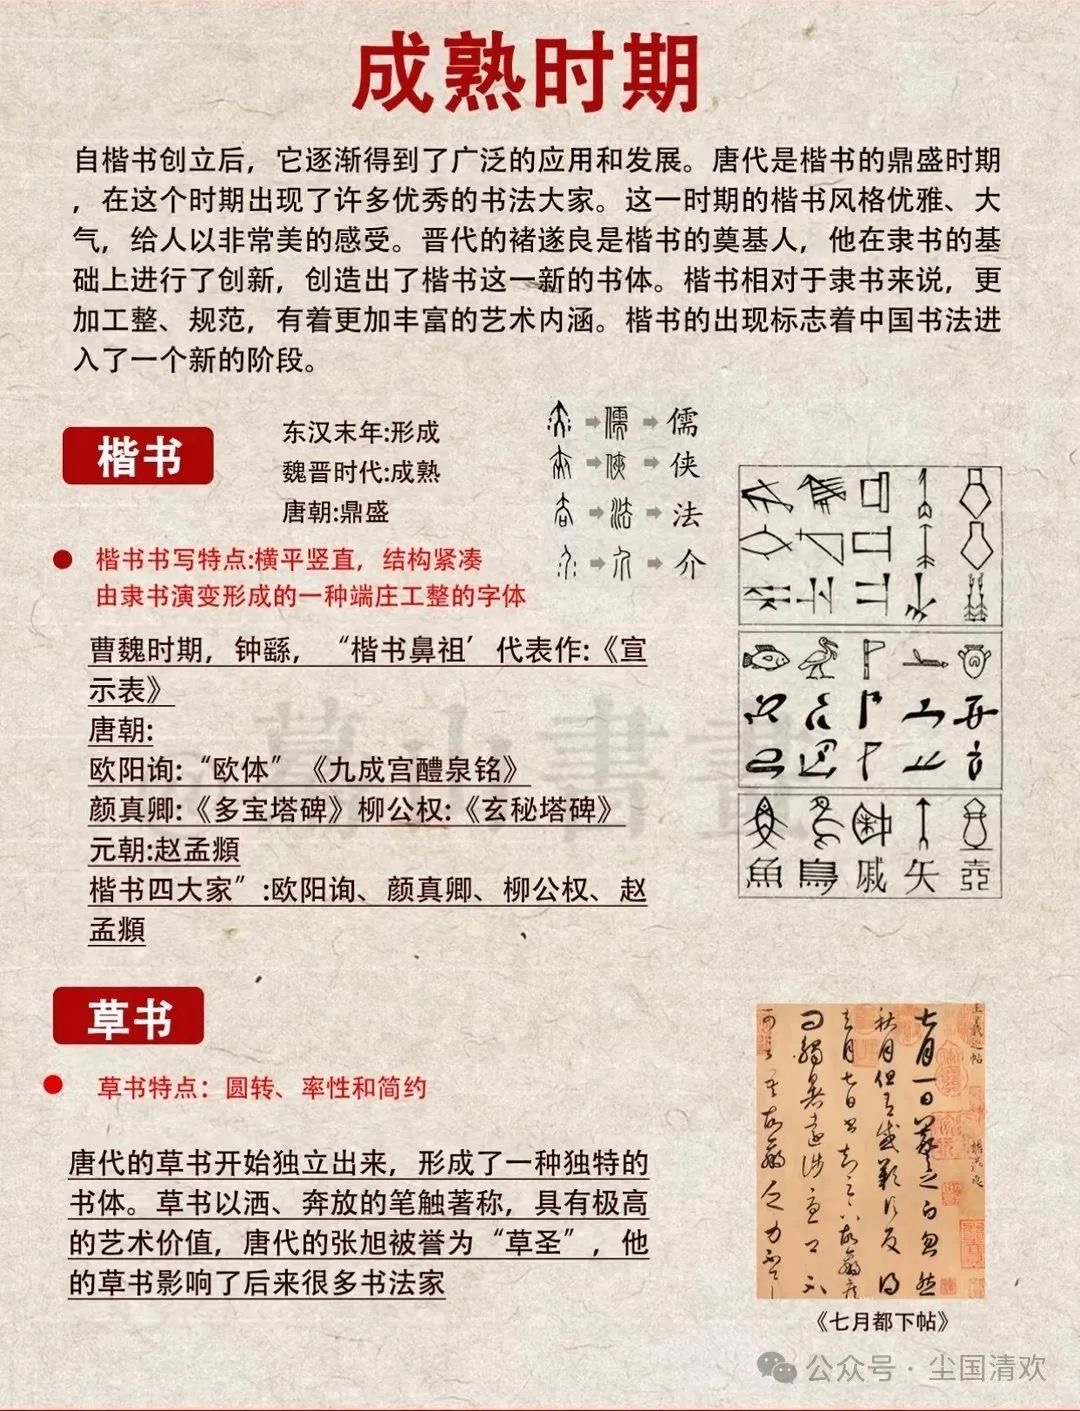 成熟时期
自楷书创立后，它逐渐得到了广泛的应用和发展。唐代是楷书的鼎盛时期
，在这个时期出现了许多优秀的书法大家。这一时期的楷书风格优雅、大
气，给人以非常美的感受。晋代的褚遂良是楷书的奠基人，他在隶书的基
础上进行了创新，创造出了楷书这一新的书体。楷书相对于隶书来说，更
加工整、规范，有着更加丰富的艺术内涵。楷书的出现标志着中国书法进
入了一个新的阶段。
楷书
东汉末年:形成
魏晋时代:成熟
唐朝:鼎盛
儒
侠
法
介
楷书书写特点:横平竖直，结构紧凑
由隶书演变形成的一种端庄工整的字体
曹魏时期，钟繇，“楷书鼻祖’代表作:《宣
示表》
唐朝:
欧阳询:“欧体”《九成宫醴泉铭》
颜真卿:《多宝塔碑》柳公权:《玄秘塔碑》
元朝:赵孟頫
楷书四大家”:欧阳询、颜真卿、柳公权、赵
孟頫
魚 鳥 戚 矢 壺
草书
草书特点：圆转、率性和简约
唐代的草书开始独立出来，形成了一种独特的
书体。草书以洒、奔放的笔触著称，具有极高
的艺术价值，唐代的张旭被誉为“草圣”，他
的草书影响了后来很多书法家
七月一日羲之白忽然
秋月但有感叹信反得
《七月都下帖》
公众号·尘国清欢